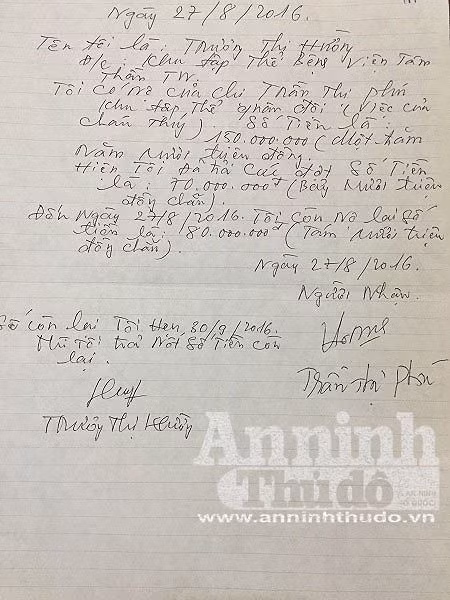 Ngày 27/8/2016.
Tên tôi là: Trương Thị Hường
Đ/c: Khu tập Thể Bệnh Viện Tâm
Thần TW.
Tôi có nợ của chị Trần Thị Phú
Khu tập Thể quân đội (Việc của
cháu Thúy) Số Tiền là:
150.000.000 (Một trăm
Năm Mươi triệu đồng.
Hiện Tôi Đã trả các đợt Số Tiền
là: 70.000.000đ (Bảy Mươi triệu
đồng chẵn).
Đến Ngày 27/8/2016. Tôi còn Nợ lại Số
tiền là: 80.000.000đ (Tám Mươi triệu
đồng chẵn).
Ngày 27/8/2016.
Người Nhận.
Số còn lại Tôi Hẹn, 30/9/2016.
Tôi trả Nốt Số Tiền còn
lại.
Trần Thị Phú
Trương Thị Hường
An ninh
Thủ đô
www.anninhthudo.vn